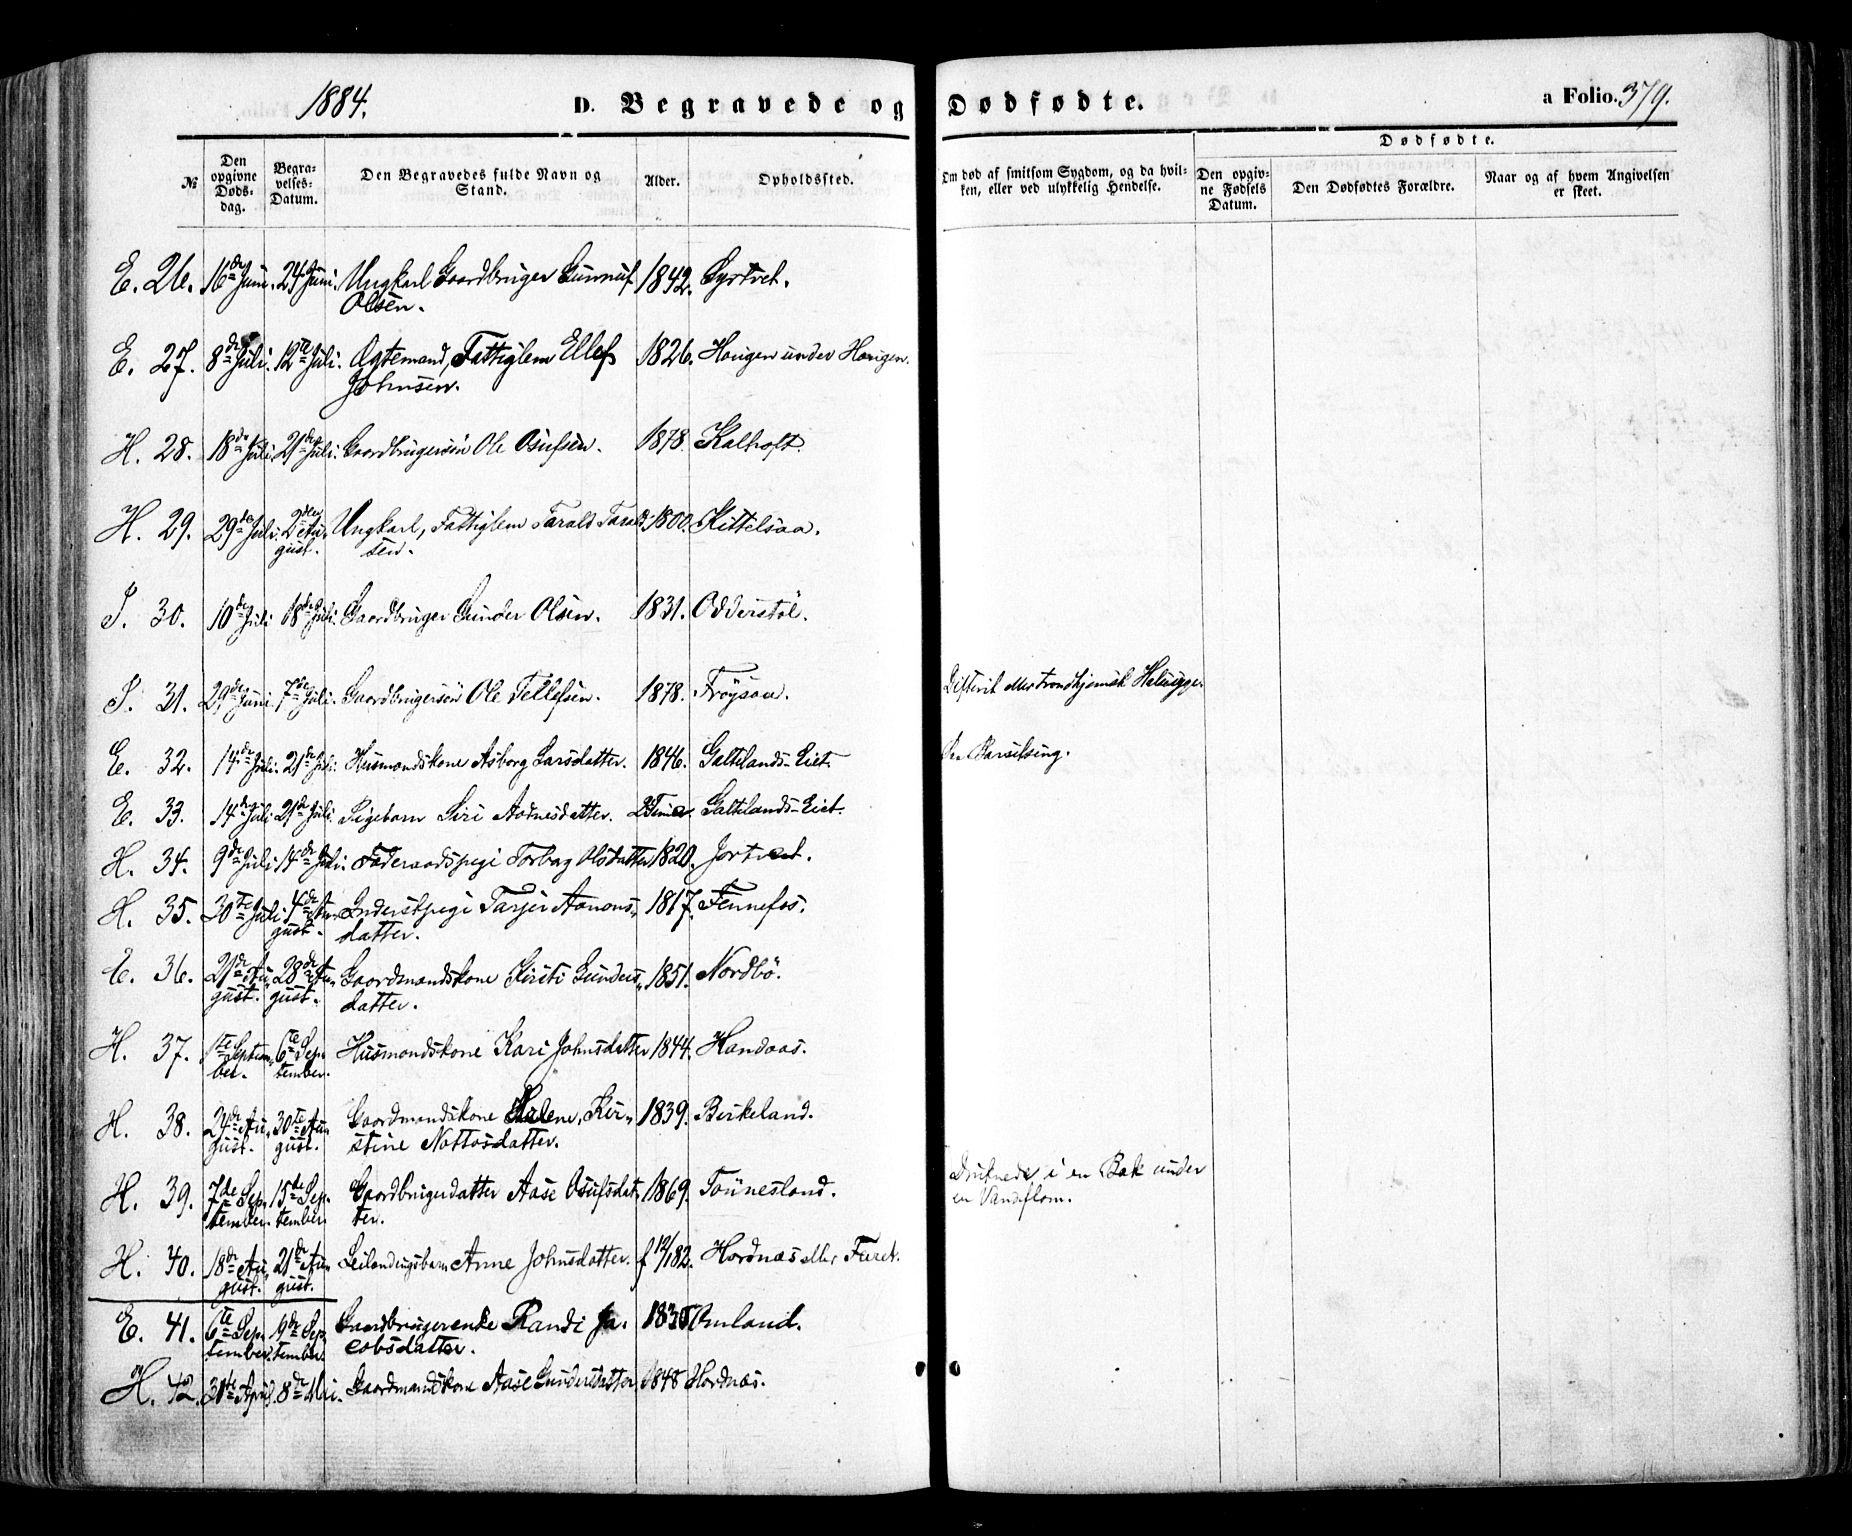 1884.
D. Begravede og Dødfødte.
a Folio. 379.
№
Den opgivne Døds-dag.
Begra-velses-Datum.
Den Begravedes fulde Navn og Stand.
Alder.
Opholdssted.
Om død af smitsom Sygdom, og da hvil-ken, eller ved ulykkelig Hendelse.
Dødfødte.
Den opgiv-ne Fødsels Datum.
Den Dødfødtes Forældre.
Naar og af hvem Angivelsen er skeet.
E. 26. 16de Juni. 24 Juni. Ungkarl Gaardbruger Gunnuf 1842. Syrtvet.
Olsen.
E. 27. 8de Juli. 12te Juli. Ægtemand, Fattiglem Ellef 1826. Hougen under Hougen.
Johnsen.
H. 28. 18de Juli 21de Juli. Gaardbrugersön Ole Osufsen. 1878. Kalhoft.
H. 29. 29de Juli. 2den Au- Ungkarl, Fattiglem Tarald Taralds- 1800. Kittelsaa.
gust. sen.
I. 30. 10de Juli 18de Juli. Gaardbruger Gunder Olsen. 1831. Odderstöl.
I. 31. 29de Juni. 7de Juli. Gaardbrugersön Ole Tellefsen. 1878. Fröysaa. Difterit eller trondhjemsk Halssyge.
E. 32. 14de Juli. 21de Juli. Husmandskone Asborg Larsdatter. 1846. Galtelands-Eiet. Barselseng.
E. 33. 14de Juli 21de Juli. Pigebarn Siri Aadnesdatter. 2 Timer. Galtelands-Eiet.
H. 34. 9de Juli 14de Juli. Föderaadspige Torbog Olsdatter 1820. Jortvet.
H. 35. 30te Juli 4de Au- Inderstpige Tarjer Aanons- 1817. Fennefos.
gust. datter.
E. 36. 21de Au- 28de Au- Gaardmandskone Kirsti Gunders- 1851. Nordbö.
gust. gust. datter.
H. 37. 1ste Septem- 6te Sep- Husmandskone Kari Johnsdatter 1844. Handaas.
ber. tember.
H. 38. 24de Au- 30te Au- Gaardmandskone Helene, Kir- 1839. Birkeland.
gust. gust. stine Nottosdatter.
H. 39. 7de Sep- 15de Sep- Gaardbrugerdatter Aase Osufsdat- 1869. Tönnesland. Druknede i en Bæk under
tember. tember. ter. en Vandflom.
H. 40. 18de Au- 21de Au- Leilændingsbarn Anne Johnsdatter. f 12/1 82. Hordnæs eller Furet.
gust. gust.
E. 41. 6te Sep- 9de Sep- Gaardbrugerenke Randi Ja- 1835 Omland.
tember. tember. cobsdatter.
H. 42. 30te April. 8de Mai. Gaardmandskone Aase Gundersdatter 1848 Hordnæs.